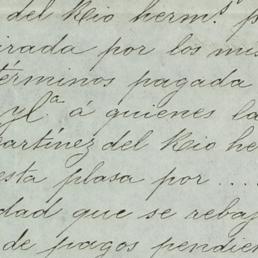 del Rio herm.s
irada por los mis
términos pagada
á quienes la
artínez del Rio he
esta plasa por ....
dad que se rebaj
de pagos pendien